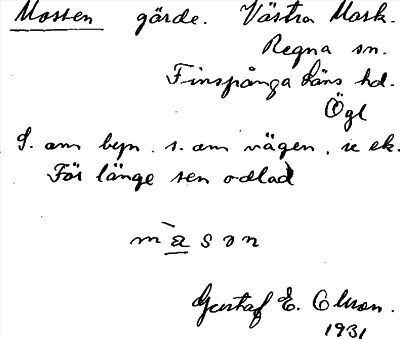 Mossen gärde. Västra Mark.
Regna sn.
Finspånga läns hd.
Ögl
S. om byn. s. om vägen, ic ek.
För länge sen odlad
màson
Gustaf E. Olsson.
1931